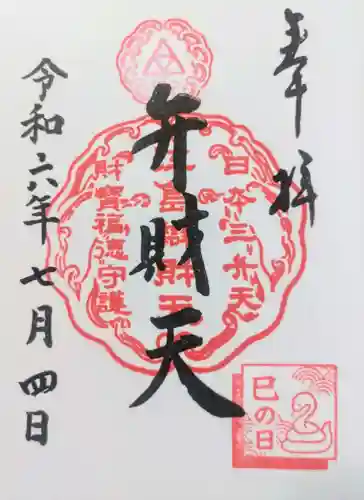 奉拝
弁財天
日本三弁天
財寶福徳守護
巳の日
令和六年七月四日